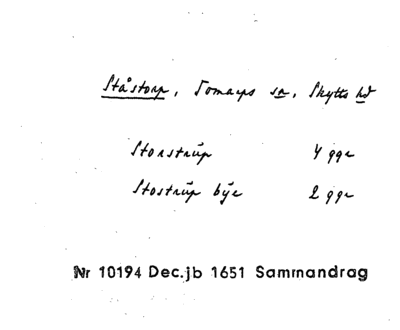 Ståstorp, Tomarps sn, Skytts hd
Storstrüp 4 gge
Stostrüp bÿe 2 gge
Nr 10194 Dec.jb 1651 Sammandrag